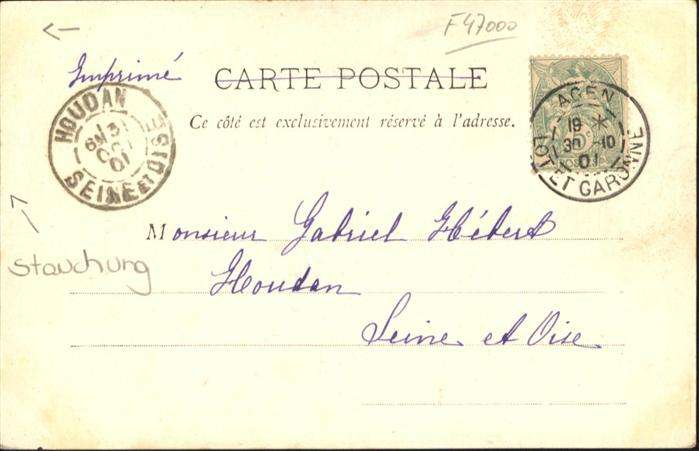 F47000
Imprimé
CARTE POSTALE
Ce côté est exclusivement réservé à l'adresse.
HOUDAN
31
OCT
01
SEINE ET OISE
AGEN
19 *
30 -10
01
LOT ET GARONNE
Monsieur Gabriel Hébert
Houdan
Seine et Oise
Stauchung